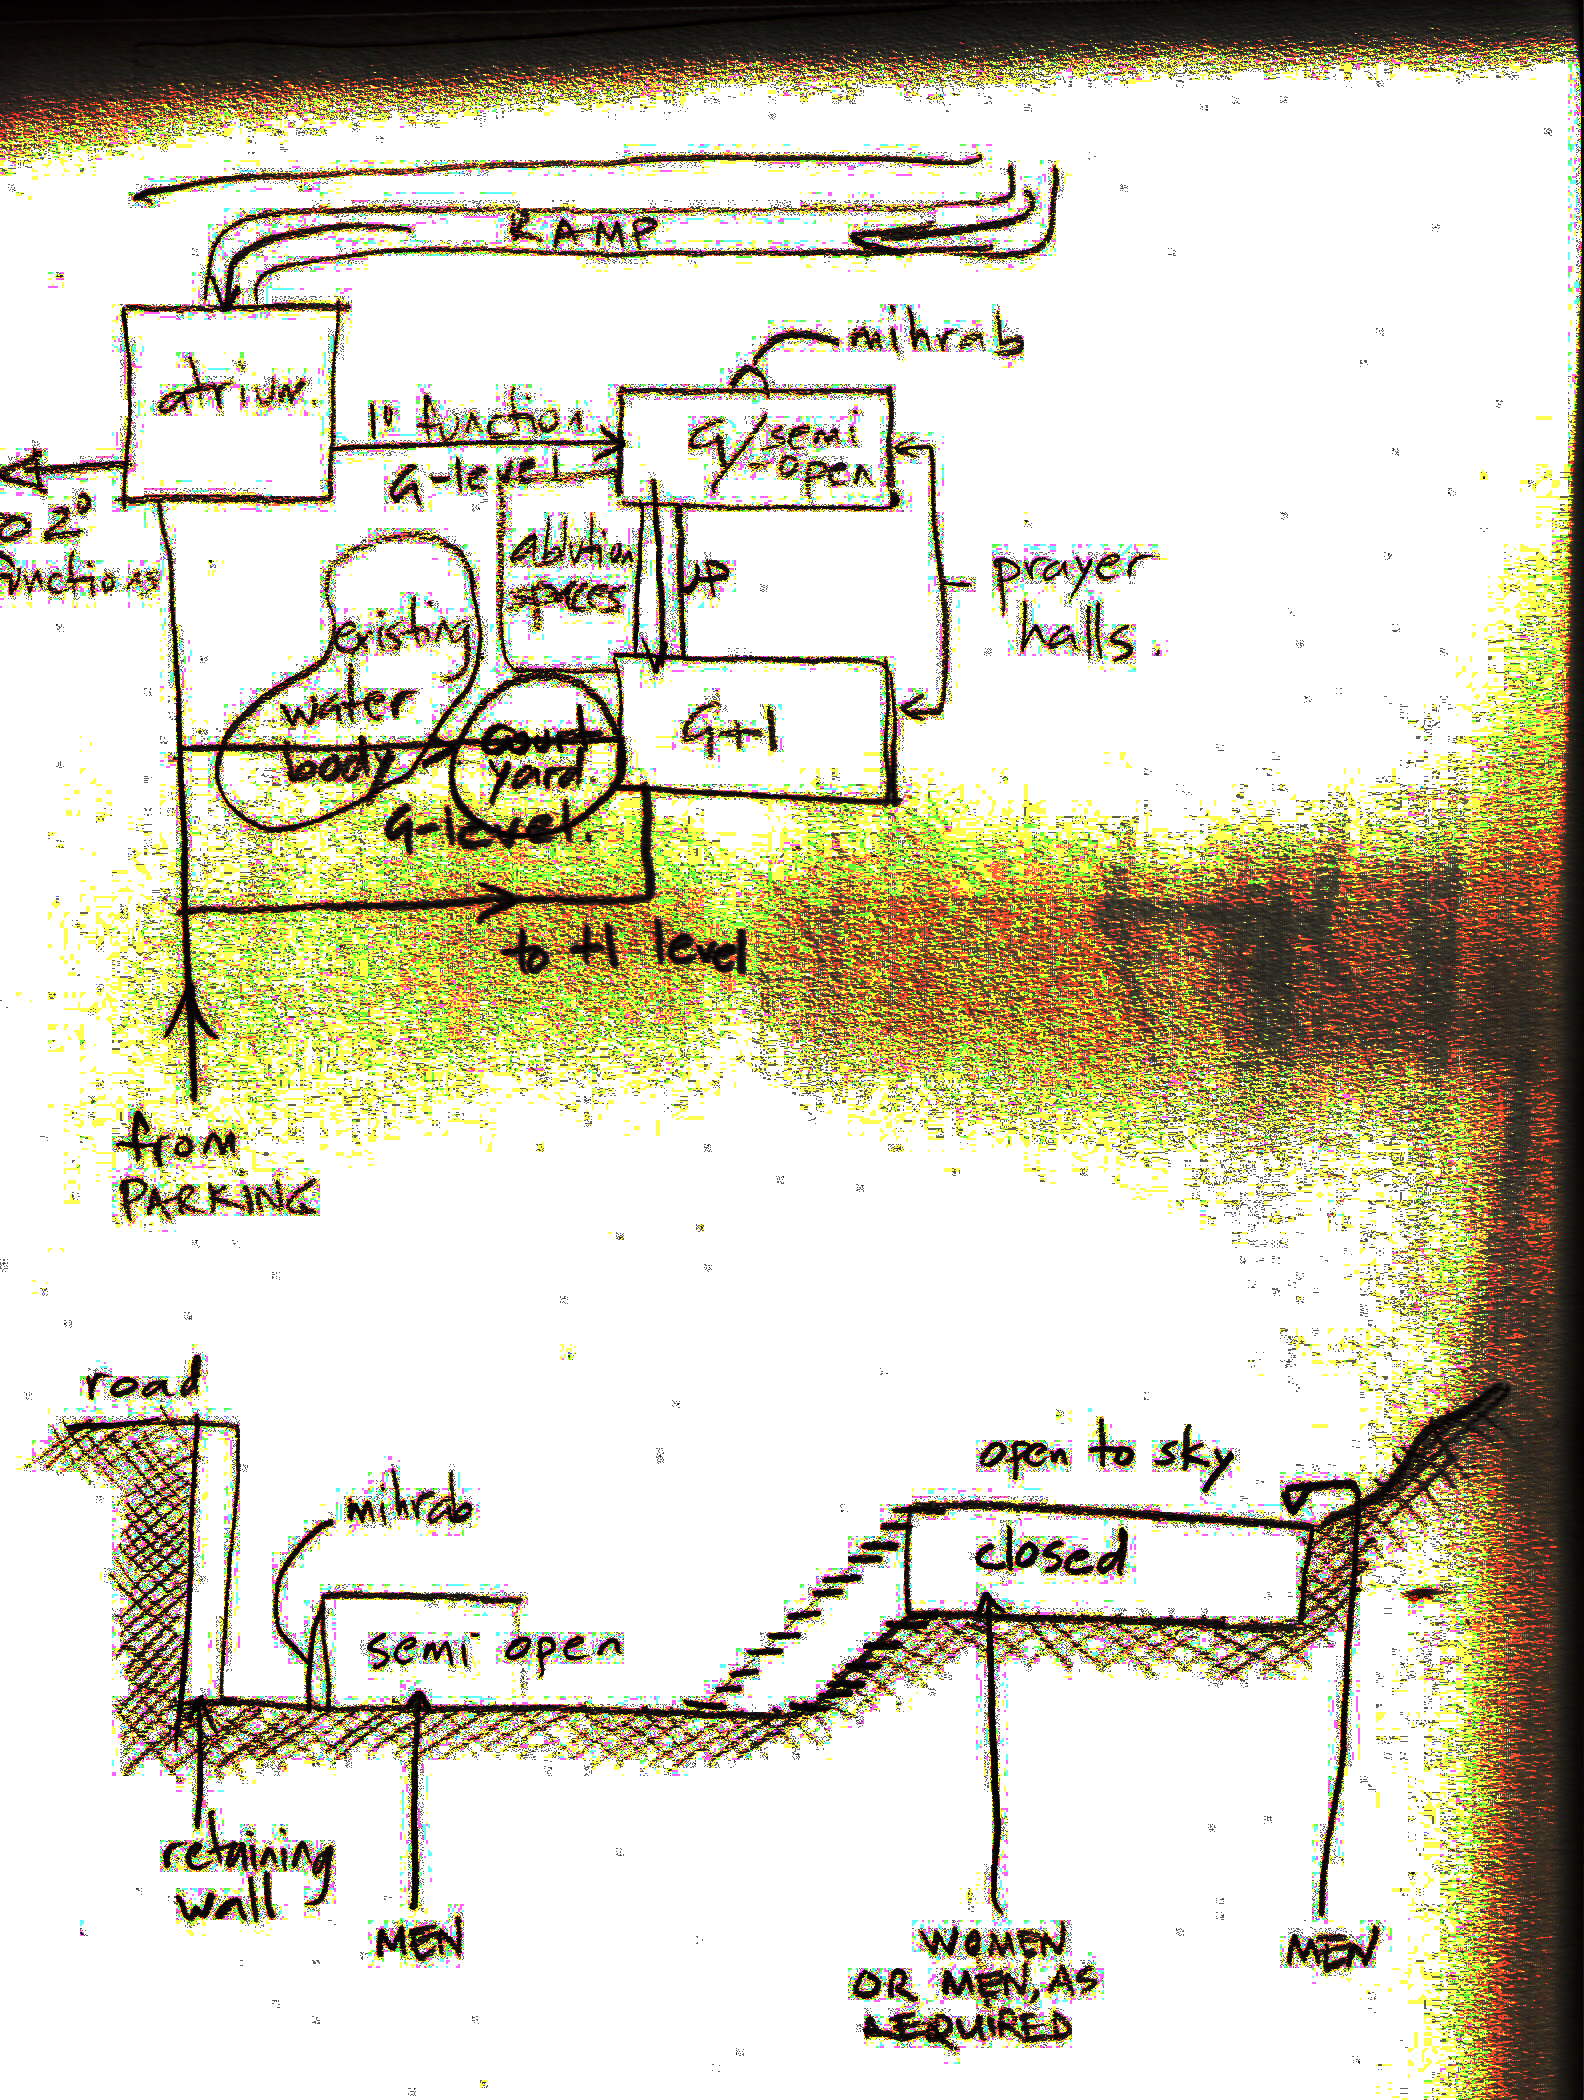 RAMP
mihrab
atrium.
1° function
G-level
G/semi
-open
2°
functions
ablution
spaces
UP
prayer
halls.
existing
water
body
court
yard
G-level.
G+1
to +1 level
from
PARKING
road
open to sky
mihrab
closed
semi open
retaining
wall
MEN
WOMEN
OR MEN, AS
REQUIRED
MEN